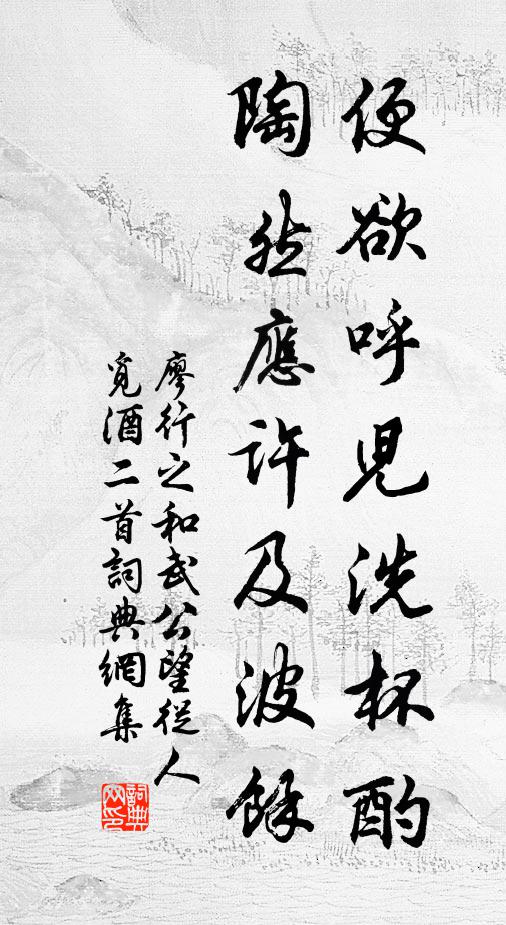 便欲呼兒洗杯酌
陶然應許及波餘
廖行之和武公望從人
覓酒二首詞典網集
詞典
网印